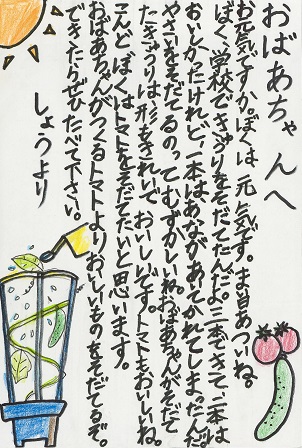 おばあちゃんへ
お元気ですか。ぼくは元気です。まい日あついね。
ぼく、学校できゅうりをそだてたんだよ。三本できて、二本は
おいしかったけれど、一本は、あながあいてかれてしまったんだ。
やさいをそだてるのって、むずかしいね。おばあちゃんがそだて
たきゅうりは形もきれいで、おいしいです。トマトもおいしいね。
こんど、ぼくはトマトをそだてたいと思います。
おばあちゃんがつくるトマトよりおいしいものをそだてるぞ。
できたらぜひたべて下さい。
しょうより